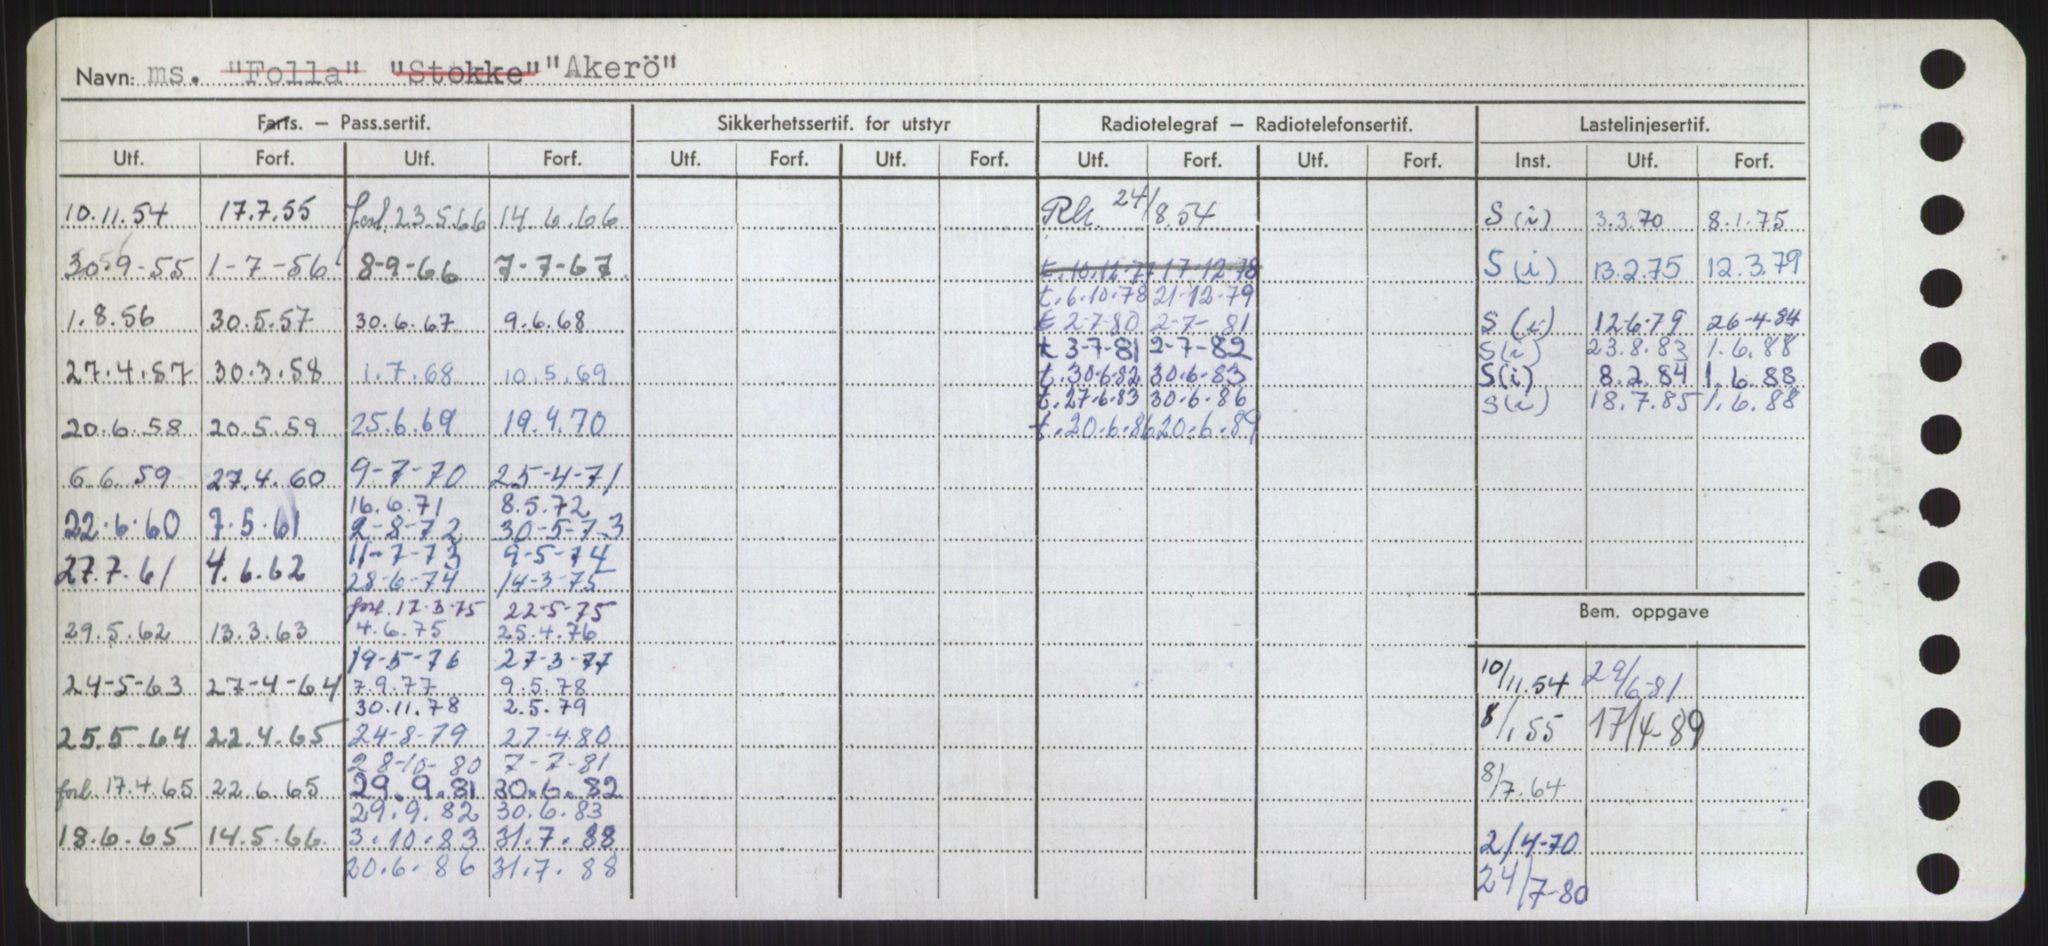 Navn: ms. "Folla" "Stokke" "Akerö"
Farts. – Pass.sertif. Sikkerhetssertif. for utstyr Radiotelegraf – Radiotelefonsertif. Lastelinjesertif.
Utf. Forf. Utf. Forf. Utf. Forf. Utf. Forf. Utf. Forf. Utf. Forf. Inst. Utf. Forf.
10.11.54 17.7.55 forl. 23.5.66 14.6.66 Rk. 24/8.54 S (i) 3.3.70 8.1.75
30-9-55 1-7-56 8-9-66 7-7-67 t. 10.12.77 17-12-78 S (i) 13.2.75 12.3.79
t. 6.10.78 21-12-79
1.8.56 30.5.57 30.6.67 9.6.68 t 2-7-80 2-7-81 S (i) 12-6-79 26-4-84
t 3-7-81 2-7-82 S(i) 23.8.83 1.6.88
27.4.57 30.3.58 1.7.68 10.5.69 t. 30.6.82 30.6-83 S(i) 8.2.84 1.6.88
t. 27.6.83 30.6.86 S(i) 18.7.85 1.6.88
20.6.58 20.5.59 25.6.69 19.4.70 t. 20.6.86 20.6.89
6.6.59 27.4.60 9-7-70 25-4-71
16.6.71 8.5.72
22.6.60 7.5.61 2-8-72 30-5-73
11-7-73 9-5-74
27.7.61 4.6.62 28-6-74 14-3-75
forl. 17-3-75 22-5-75
Bem. oppgave
29.5.62 13.3.63 4.6.75 25.4.76
19-5-76 27-3-77
24-5-63 27-4-64 7.9.77 9.5.78 10/11.54 29/6-81
30.11.78 2.5.79
25.5.64 22.4.65 24-8-79 27-4.80 8/1.55 17/4-89
28-10-80 7-7-81
forl. 17.4.65 22.6.65 29.9.81 30.6.82 8/7.64
29.9.82 30.6.83
18.6.65 14.5.66 3.10.83 31.7.88 2/4-70
20.6.86 31.7.88 24/7-80